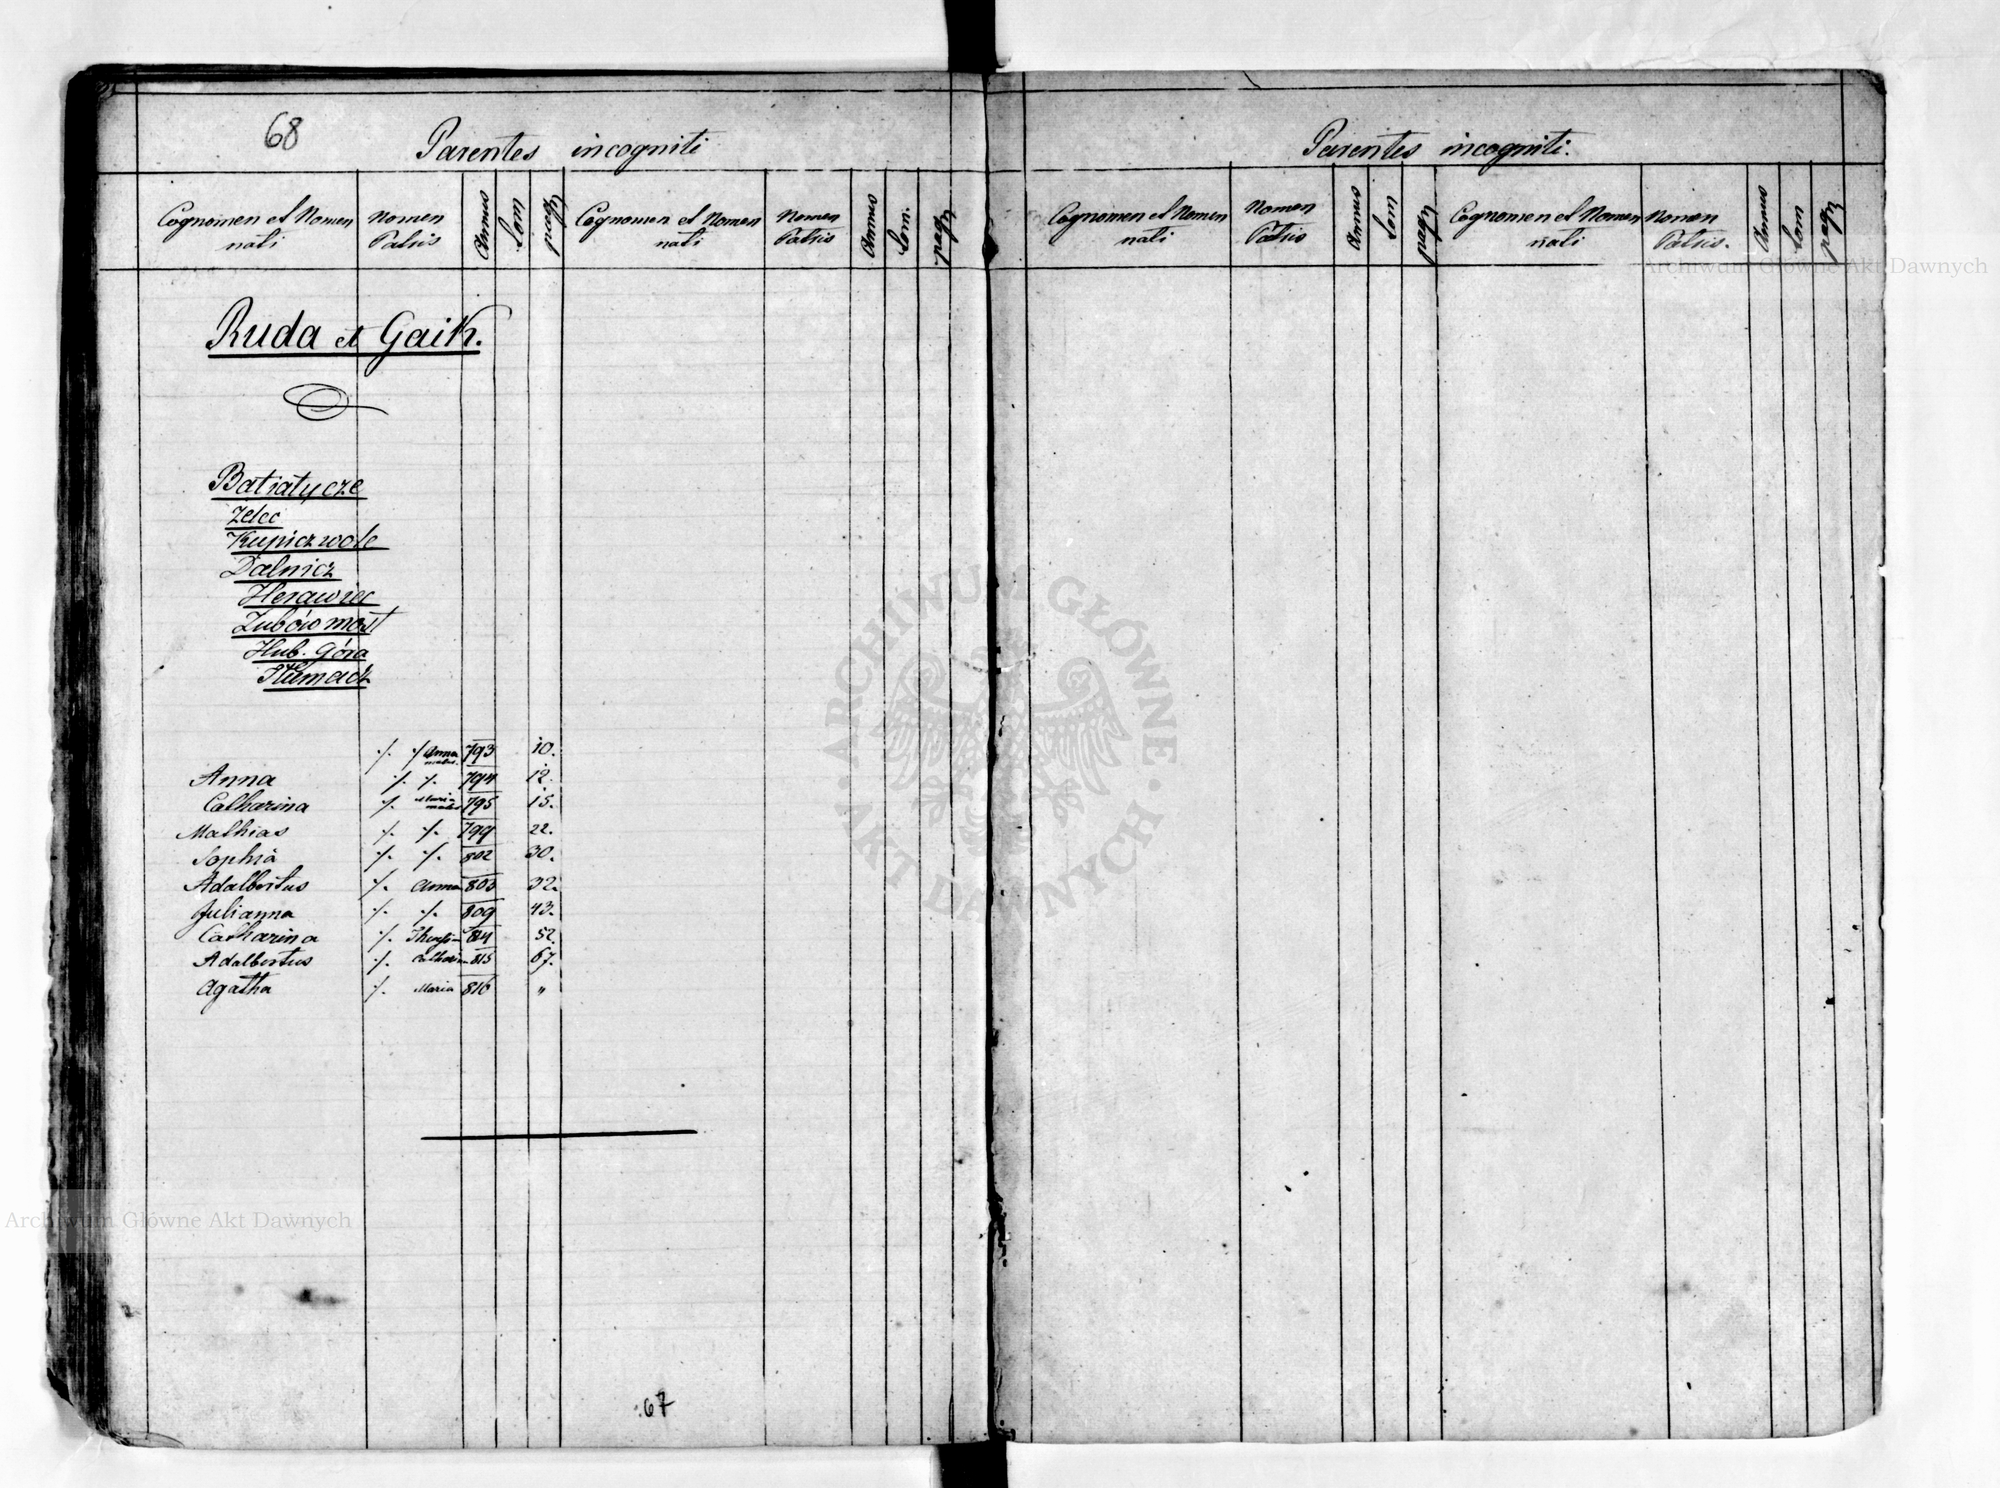 68
Parentes incogniti
Cognomen et Nomen nati
Nomen Patris
Annus
Tom
pag
Cognomen et Nomen nati
Nomen Patris
Annus
Tom.
pag
Ruda et Gaik.
Batiatycze
Zelec
Kupiczwole
Dalnicz
Herawiec
Zubów most
Hub. Góra
Tłumacz
·/. ·/. Anna mater. 793 10.
Anna ·/. ·/. 794 12.
Catharina ·/. Maria mater 795 15.
Mathias ·/. ·/. 799 22.
Sophia ·/. ·/. 802 30.
Adalbertus ·/. Anna 803 32.
Julianna ·/. ·/. 809 43.
Catharina ·/. 814 52.
Adalbertus ·/. 815 67.
Agatha ·/. Maria 816 "
67
Parentes incogniti.
Cognomen et Nomen nati
Nomen Patris
Annus
Tom
pag
Cognomen et Nomen nati
Nomen Patris.
Annus
Tom
pag
Archiwum Główne Akt Dawnych
ARCHIWUM GŁÓWNE · AKT DAWNYCH ·
Archiwum Główne Akt Dawnych